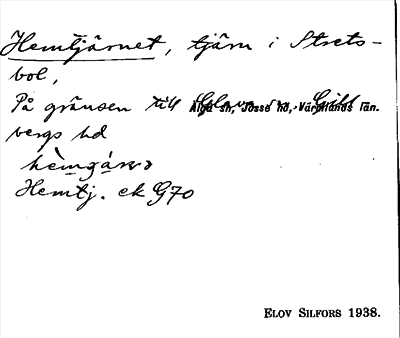 Hemtjärnet, tjärn i Strets-
bol,
På gränsen till Glava sn, Gill-
Älgå sn, Jösse hd, Värmlands län.
bergs hd
Hemtj. ek G70
ELOV SILFORS 1938.